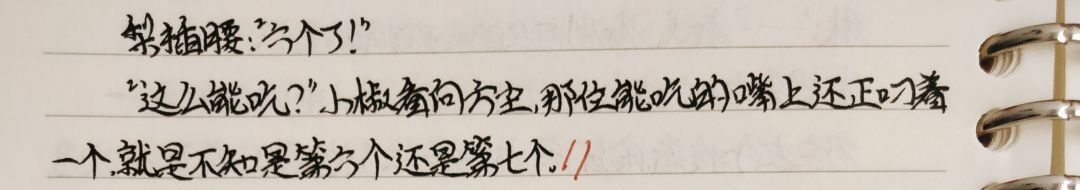 梨插腰:“六个了!”
“这么能吃?”小椒看向方尘,那位能吃的嘴上还正叼着
一个,就是不知是第六个还是第七个。//